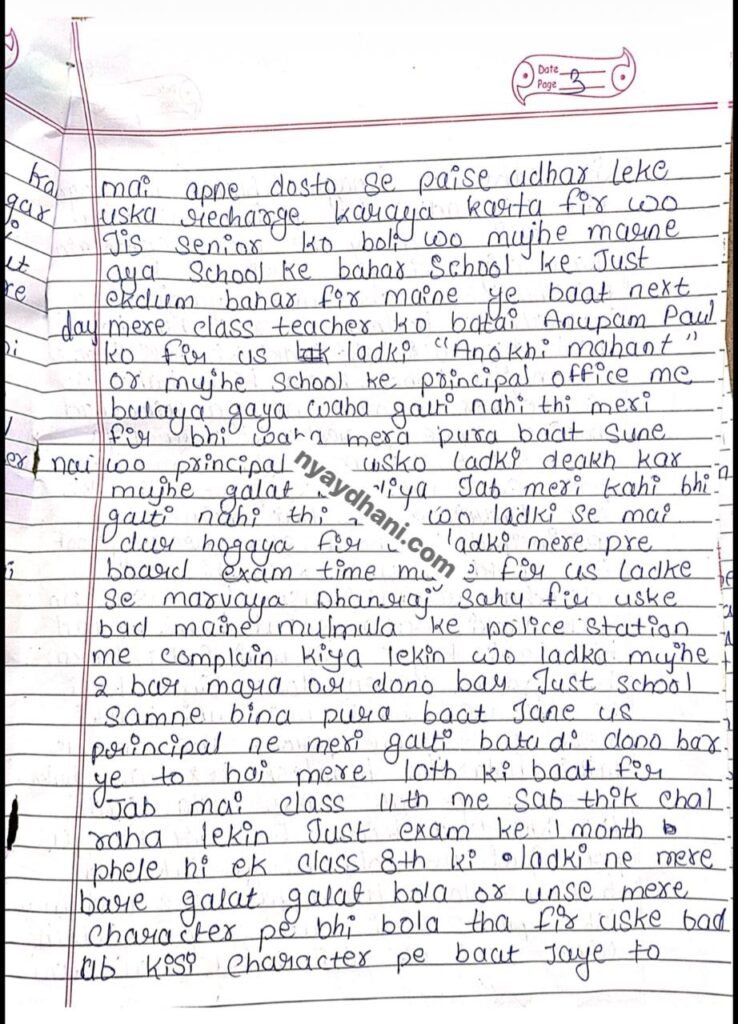 Date
Page 3
mai apne dosto se paise udhar leke
uska recharge karaya karta fir wo
Jis senior ko boli wo mujhe marne
aya School ke bahar School ke Just
ekdum bahar fir maine ye baat next
day mere class teacher ko batai Anupam Paul
ko fir us ladki "Anokhi mahant"
or mujhe school ke principal office me
bulaya gaya waha galti nahi thi meri
fir bhi waha mera pura baat sune
nai wo principal usko ladki deakh kar
mujhe galat Jab meri kahi bhi
galti nahi thi woo ladki se mai
dur hogaya fir ladki mere pre
board exam time fir us ladke
se marvaya Dhanraj Sahu fir uske
bad maine mulmula ke police station
me complain kiya lekin wo ladka mujhe
2 bar mara or dono bar Just school
samne bina pura baat Jane us
principal ne meri galti bata di dono bar
ye to hai mere 10th ki baat fir
Jab mai class 11th me sab thik chal
raha lekin Just exam ke 1 month
phele hi ek class 8th ki ladki ne mere
bare galat galat bola or unse mere
character pe bhi bola tha fir uske bad
ab kisi character pe baat Jaye to
nyaydhani.com